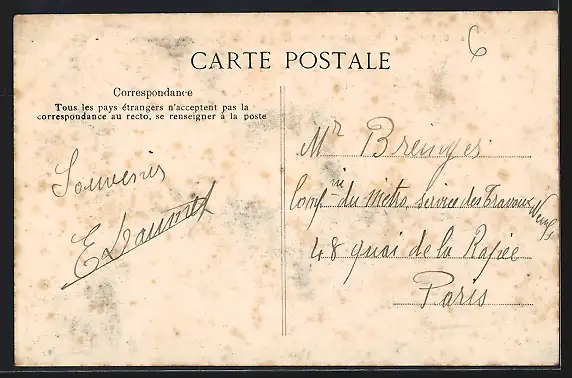 6
CARTE POSTALE
Correspondance
Tous les pays étrangers n'acceptent pas la
correspondance au recto, se renseigner à la poste
Souvenir
E Daumet
Mr
Comp nie du métro, service des Travaux Neufs
48 quai de la Rapée
Paris